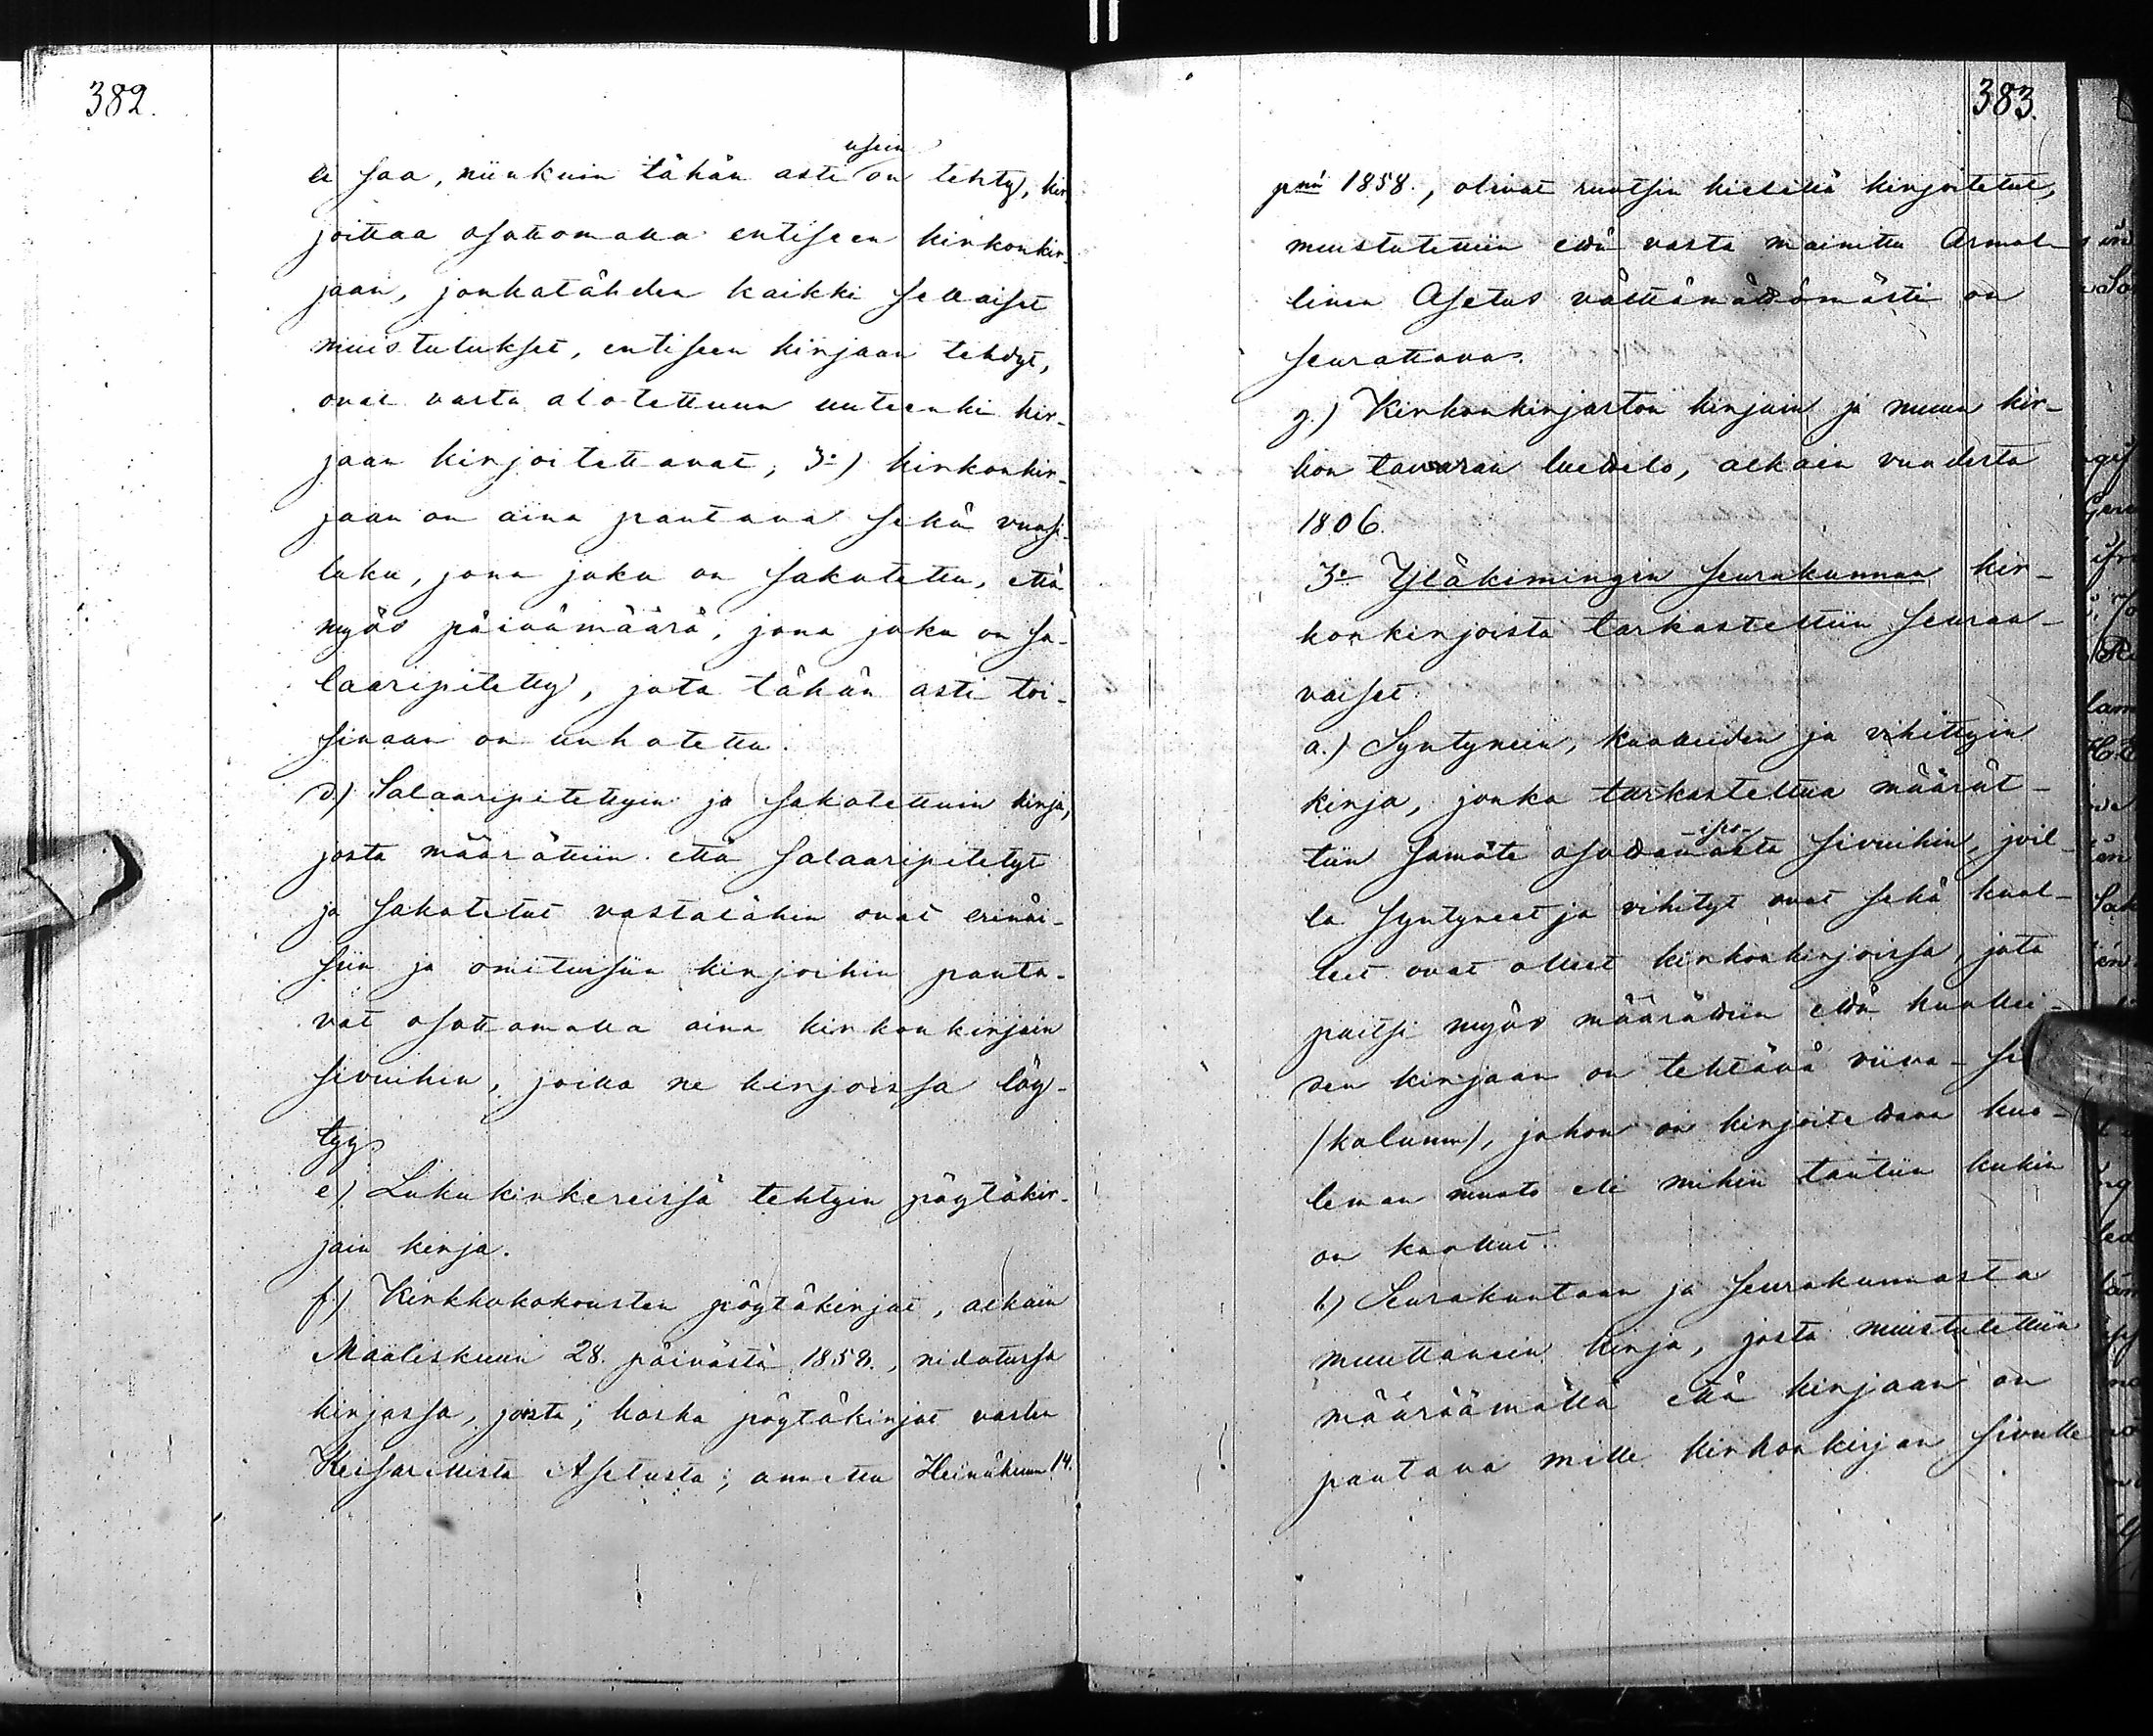 382.
usein
ei saa, niinkuin tähän asti on tehty, kir-
joittaa osottomalla entiseen kirkonkir-
jaan, jonkatähden kaikki sellaiset
muistutukset, entiseen kirjaan tehdyt,
ovat vasta alotettuun uuteenki kir-
jaan kirjoitettavat; 3:o) kirkonkir-
jaan on aina pantava sekä vuosi-
luku, jona joku on sakotettu, että
myös päivämäärä, jona joku on sa-
laaripitetty, jota tähän asti toi-
sinaan on unhotettu.
d.) Salaaripitettyin ja sakotettuin kirja,
josta määrättiin että salaaripitetyt
ja sakotetut vastatähin ovat erinäi-
siin ja omituisiin kirjoihin panta-
vat osottamalla aina kirkonkirjain
sivuihin, joilla ne kirjoissa löy-
tyy.
e) Lukukinkereissä tehtyin pöytäkir-
jain kirja.
f) Kirkkokokousten pöytäkirjat, alkain
Maaliskuun 28. päivästä 1858., nidotussa
kirjassa, josta, koska pöytäkirjat vasten
Keisarillista Asetusta, annettu Heinäkuun 14.
383.
pnä 1858., olivat ruotsin kielillä kirjoitetut,
muistutettiin että vasta mainittu Armol-
linen Asetus välttämättömästi on
seurattava.
g.) Kirkonkirjaston kirjain ja muun kir-
kon tavaran luettelo, alkain vuodesta
1806.
3:o Yläkimingin seurakunnan kir-
konkirjoista tarkastettiin seuraa-
vaiset:
a.) Syntynein, kuolleiden ja vihittyin
kirja, jonka tarkastettua määrät-
tiin samate osottamasta sivuihin, joil-
la syntyneet ja vihityt ovat sekä kuol-
leet ovat olleet kirkonkirjoissa, jota
paitsi myös määrättiin että kuollei-
den kirjaan on tehtävä viiva-
(kolumn), johon on kirjoitettava kuo-
leman muoto eli mihin tautiin kukin
on kuollut.
b.) Seurakuntaan ja seurakunnasta
muuttanein kirja, josta muistutettiin
määräämällä että kirjaan on
pantava mille kirkonkirjan sivulle